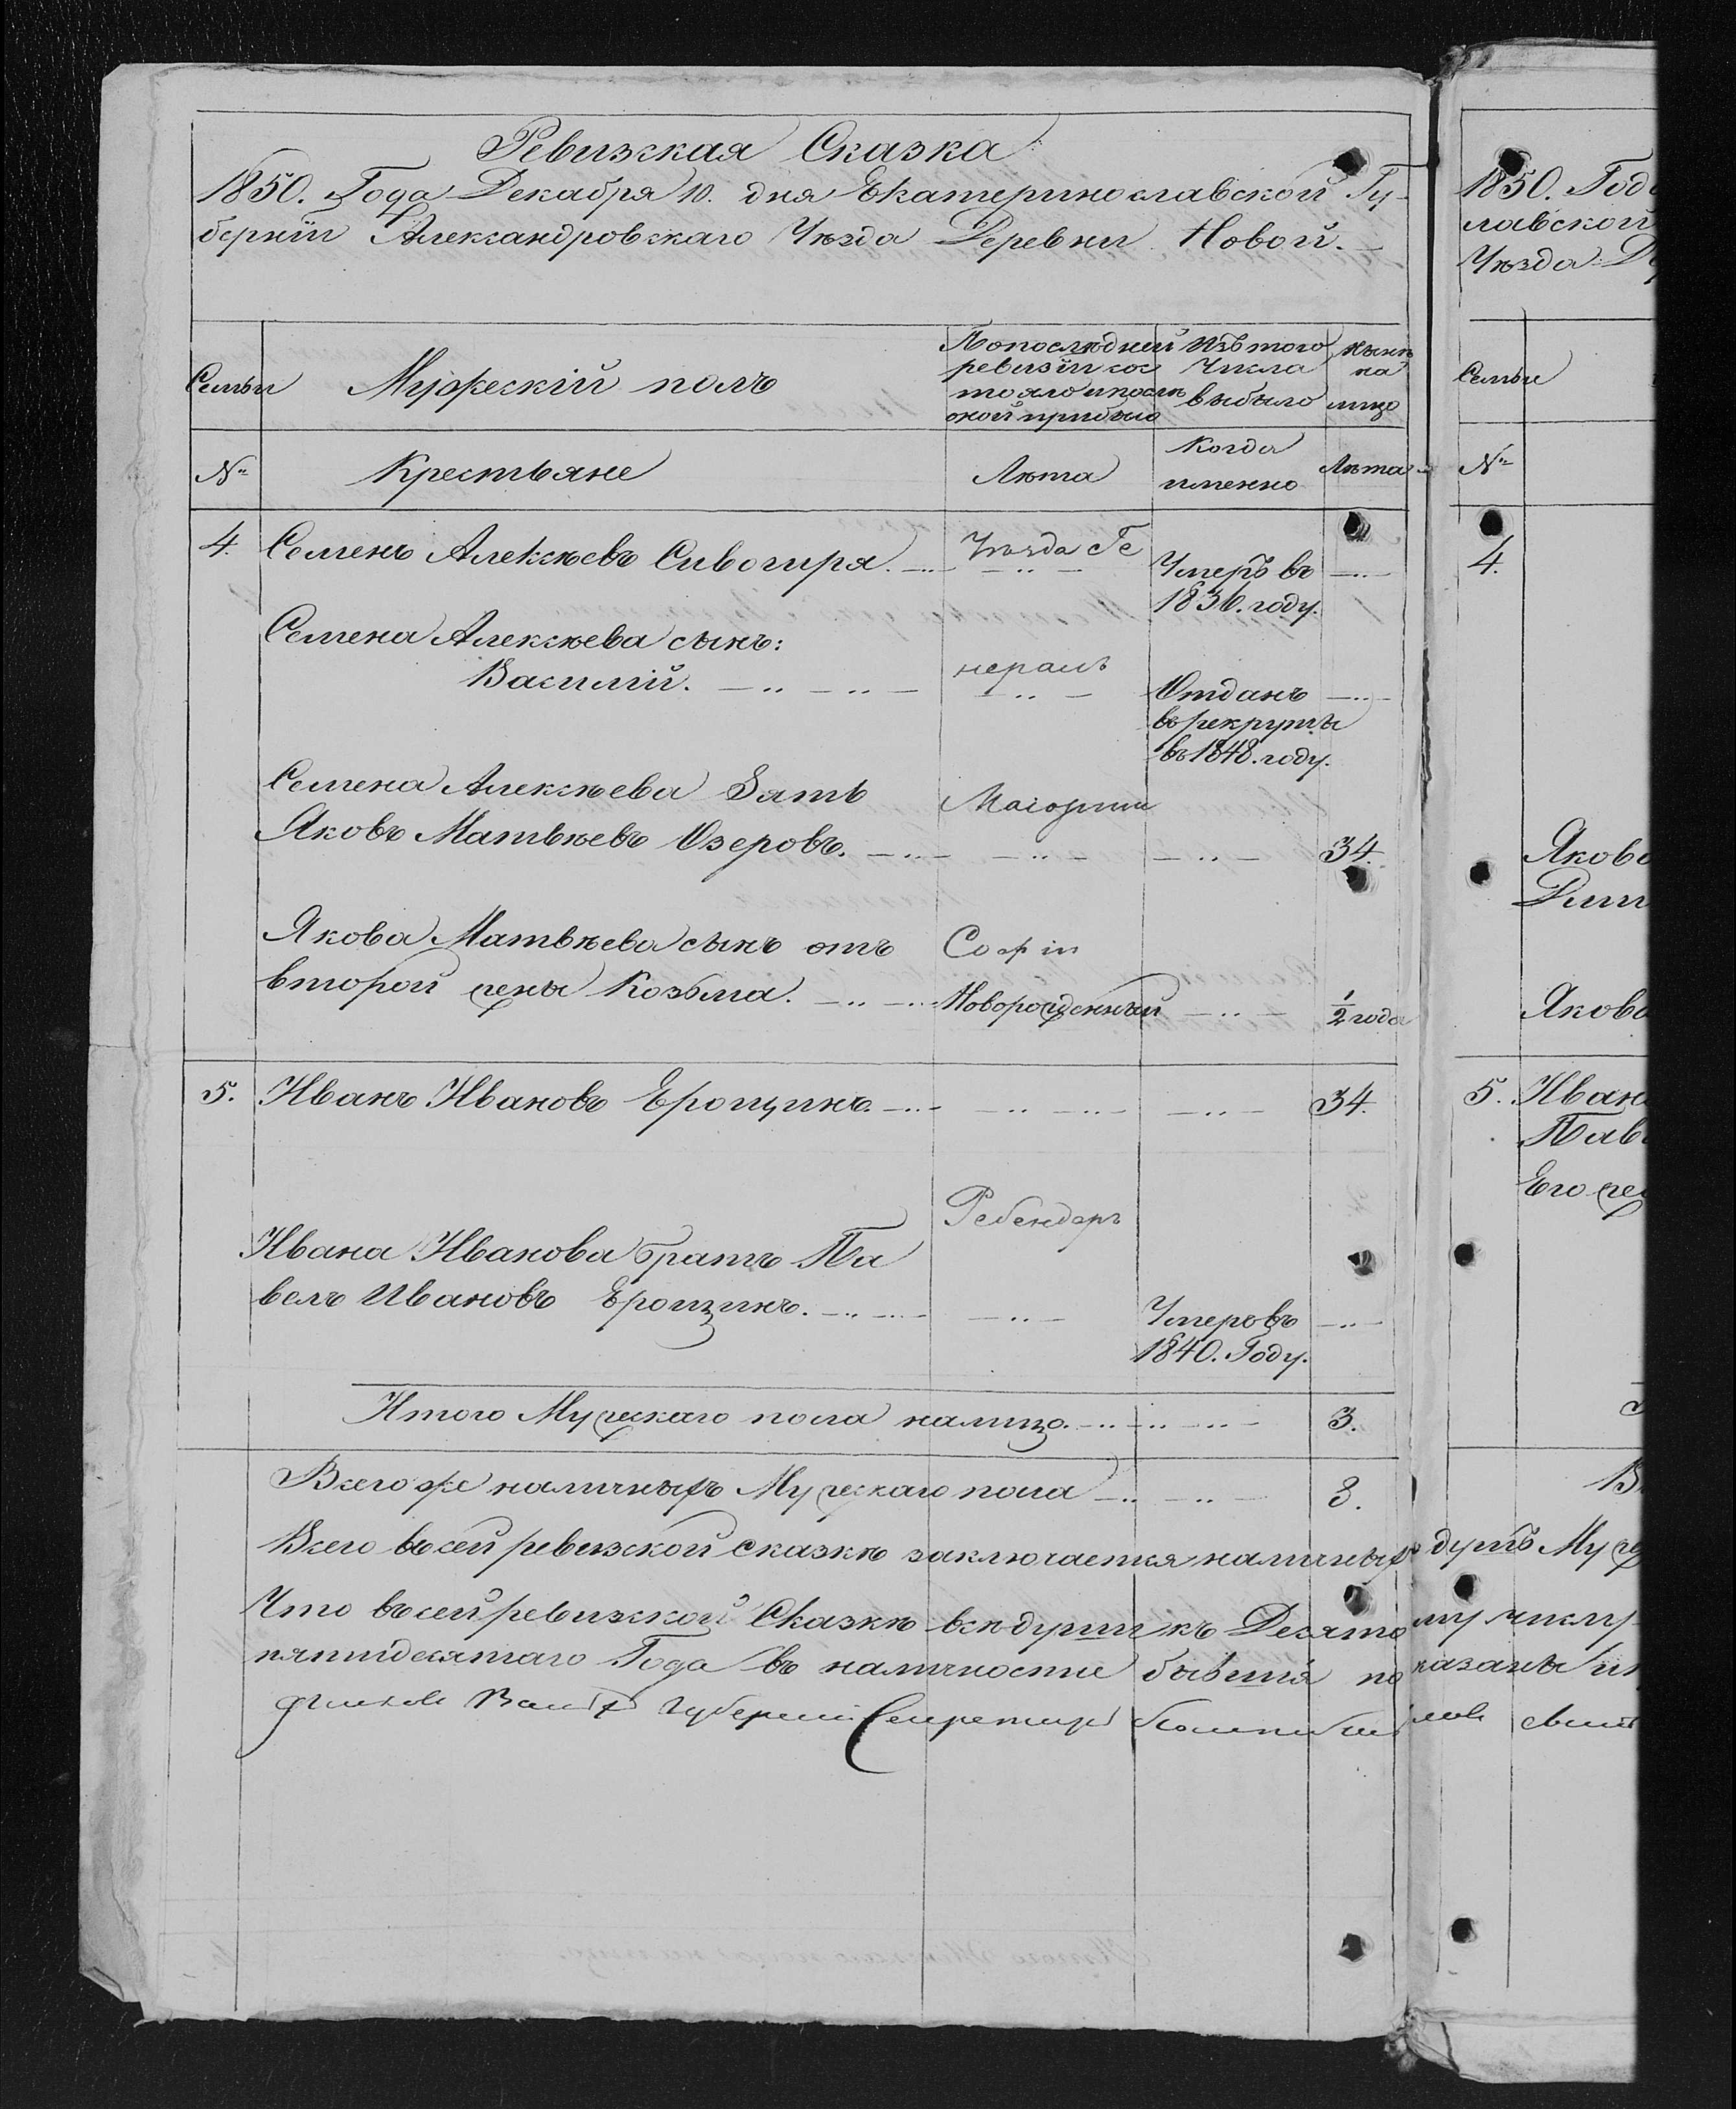 Ревизская Сказка
1850. Года Декабря 10. дня Екатеринославской Гу-
берніи Александровскаго Уѣзда Деревни Новой.
Семьи
Мужескій полъ
По последней
ревизіи сос
тояло и послѣ
оной прибыло
Изъ того
Числа
выбыло
Нынѣ
на
лицо
№
Крестьяне
Лѣта
Когда
именно
Лѣта
4. Семенъ Алексѣевъ Сивогиря.
Уѣзда Ге
Умеръ въ
1836. году.
Семена Алексѣева сынъ:
Василій.
нералъ
Отданъ
в рекруты
въ 1848. году.
Семена Алексѣева Зять
Маіорши
Яковъ Матвѣевъ Озеровъ. 34.
Якова Матвѣева сынъ отъ
Софіи
второй жены Козьма. Новорожденный 1/2 года
5. Иванъ Ивановъ Ерощинъ. 34.
Ребендеръ
Ивана Иванова братъ Па
велъ Ивановъ Ерощинъ.
Умеръ въ
1840. Году.
Итого Мужескаго пола налицо. 3.
Всего же наличныхъ Мужескаго пола 8.
Всего въ сей ревизской сказкѣ заключается наличныхъ
Что въ сей ревизской Сказкѣ всѣ души къ Десято
пятидесятаго Года въ наличности бывшія по
Губернскій Секретарь
1850. Год
лавской
Уѣзда Д
Семьи
№
4.
Яково
Яково
5. Иван
Пав
Его же
В
душъ Муж
му числу
казаны и